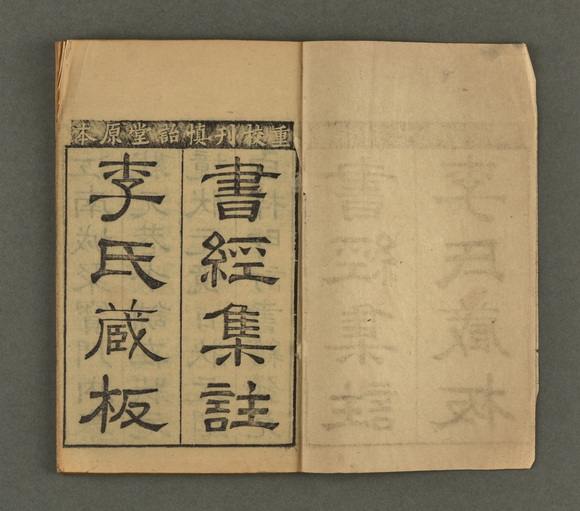 重校刊慎詒堂原本
書經集註
李氏蔵板